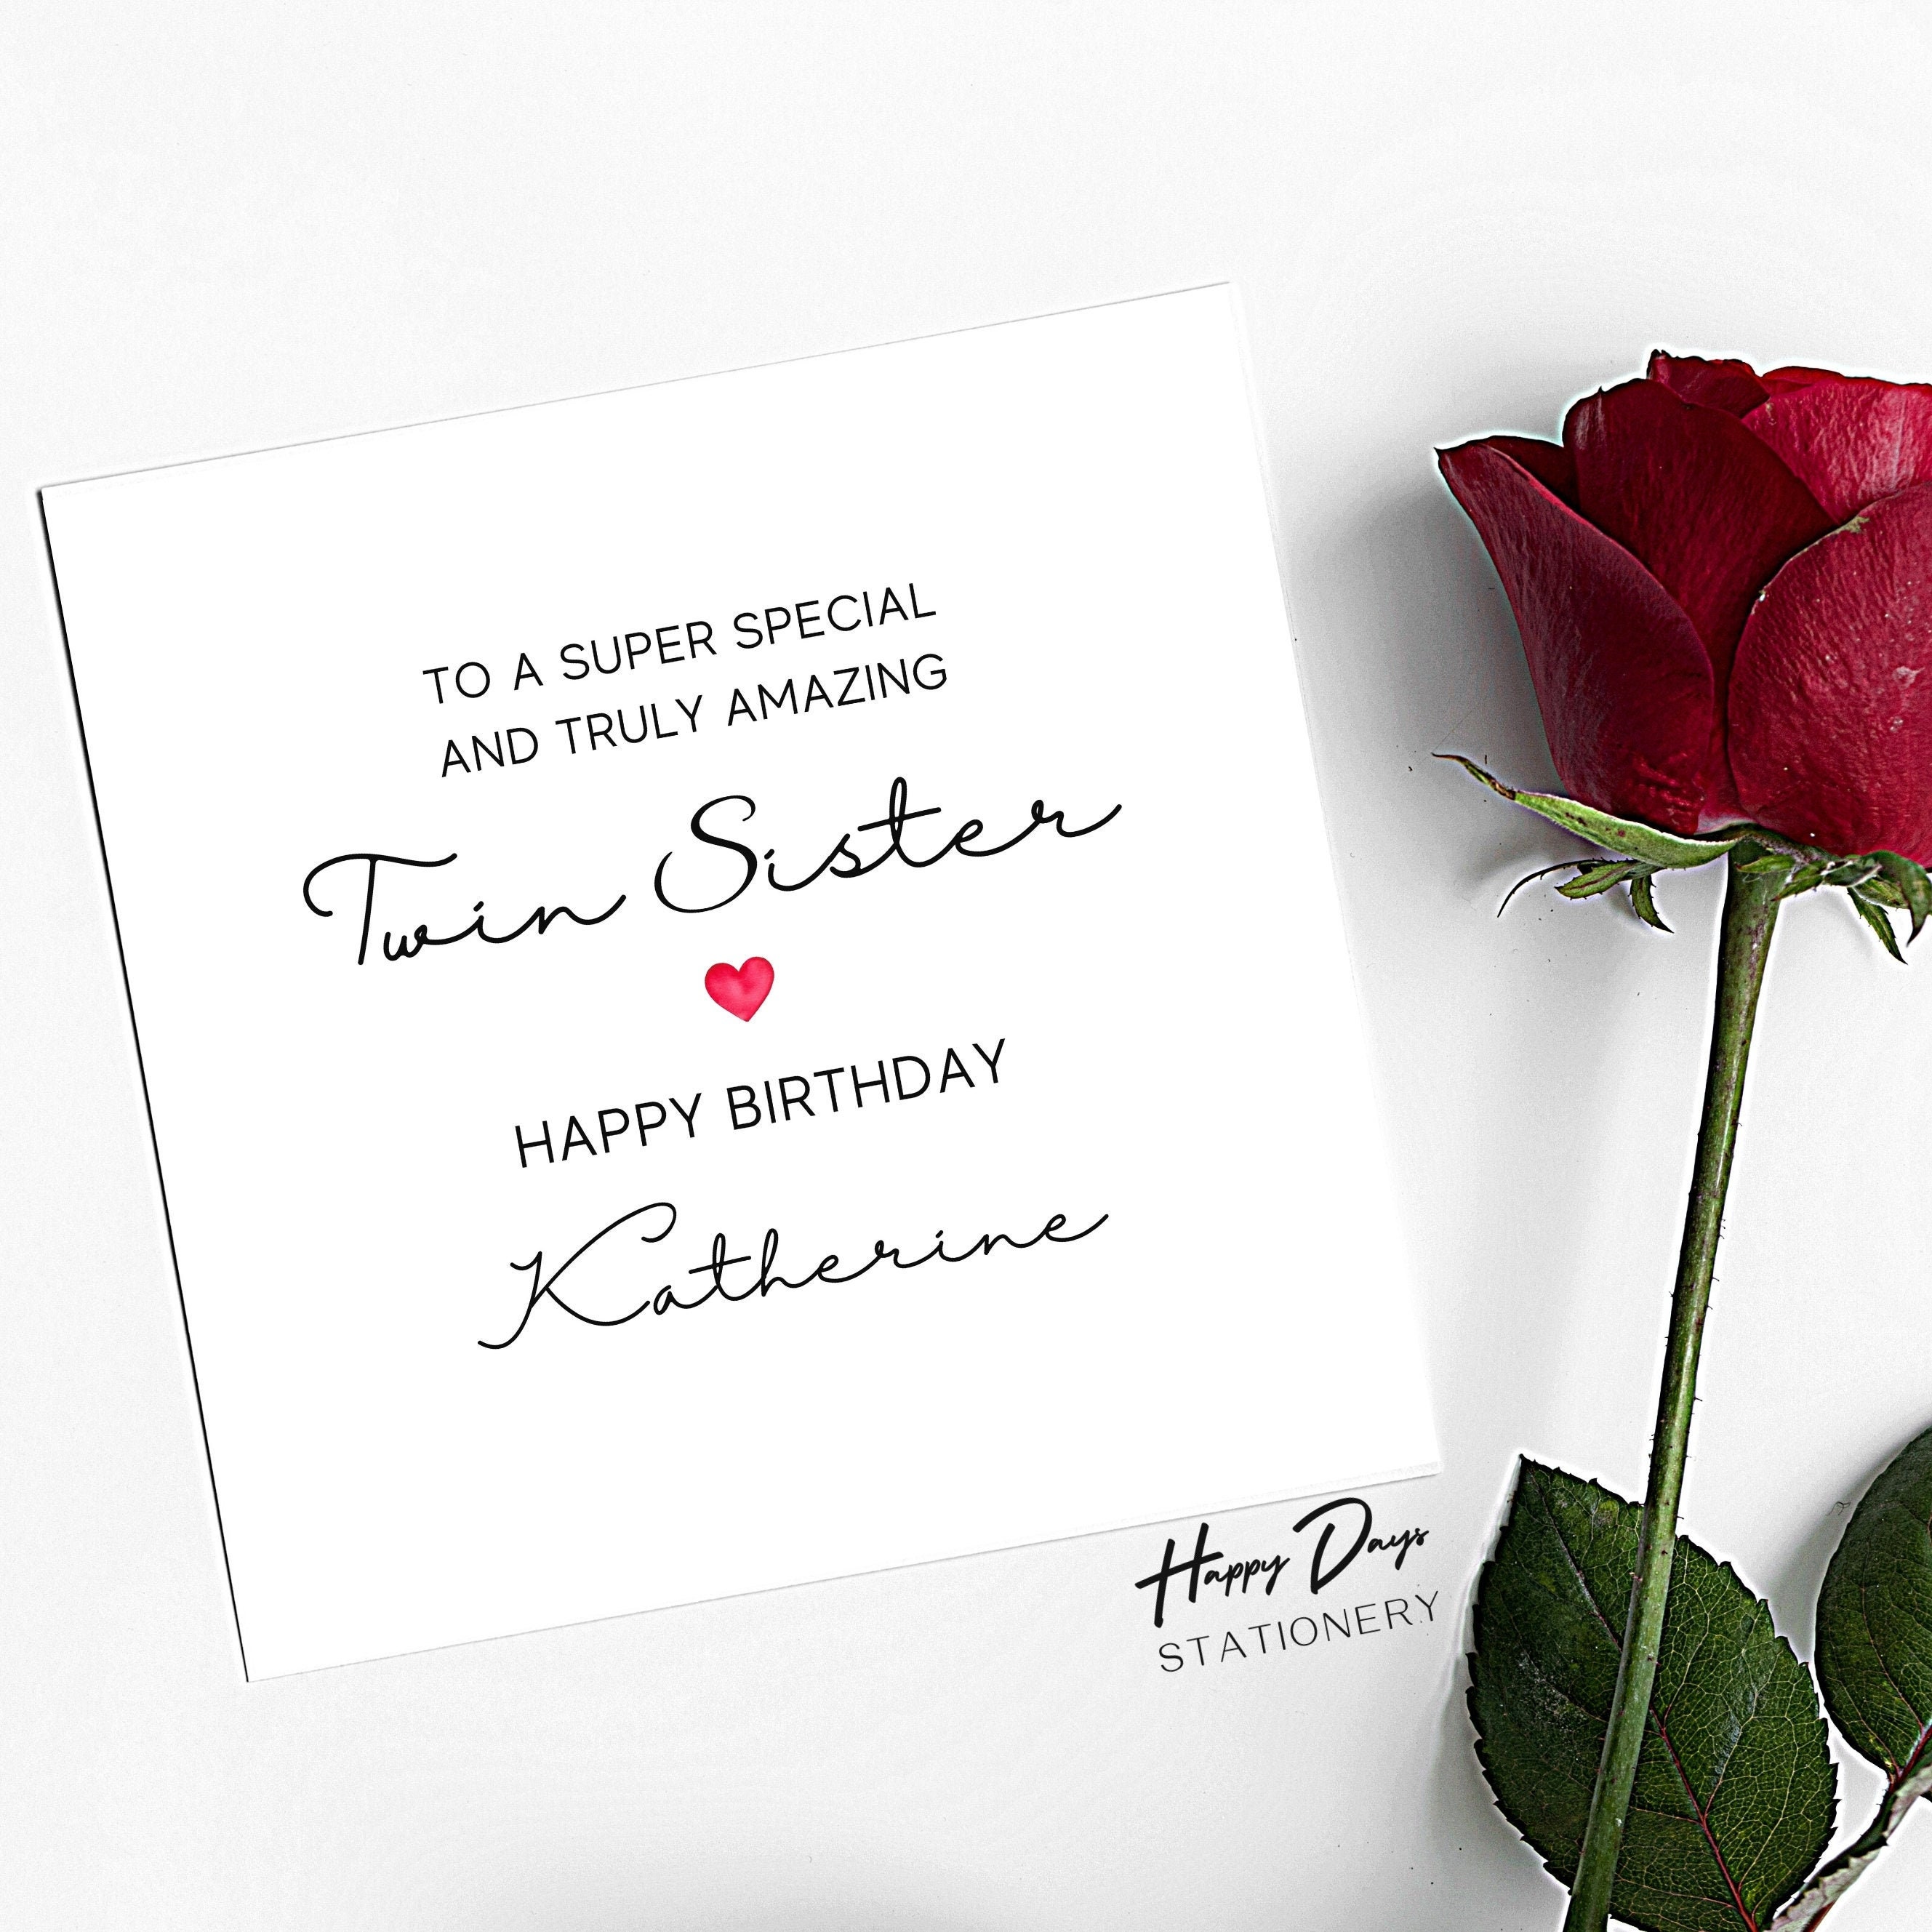 TO A SUPER SPECIAL
AND TRULY AMAZING
Twin Sister
HAPPY BIRTHDAY
Katherine
Happy Days
STATIONERY